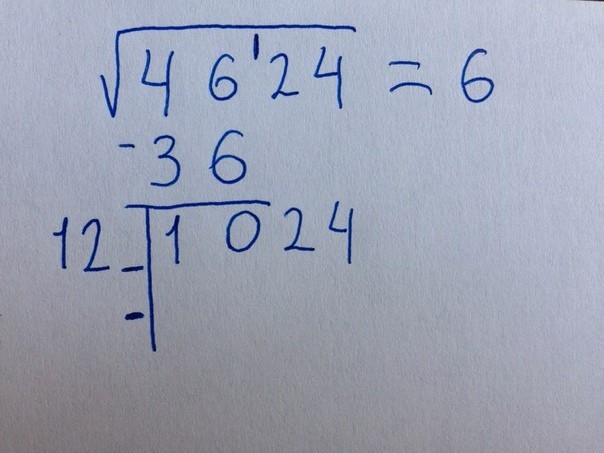 √46'24 = 6
-36
12_ | 1024
-